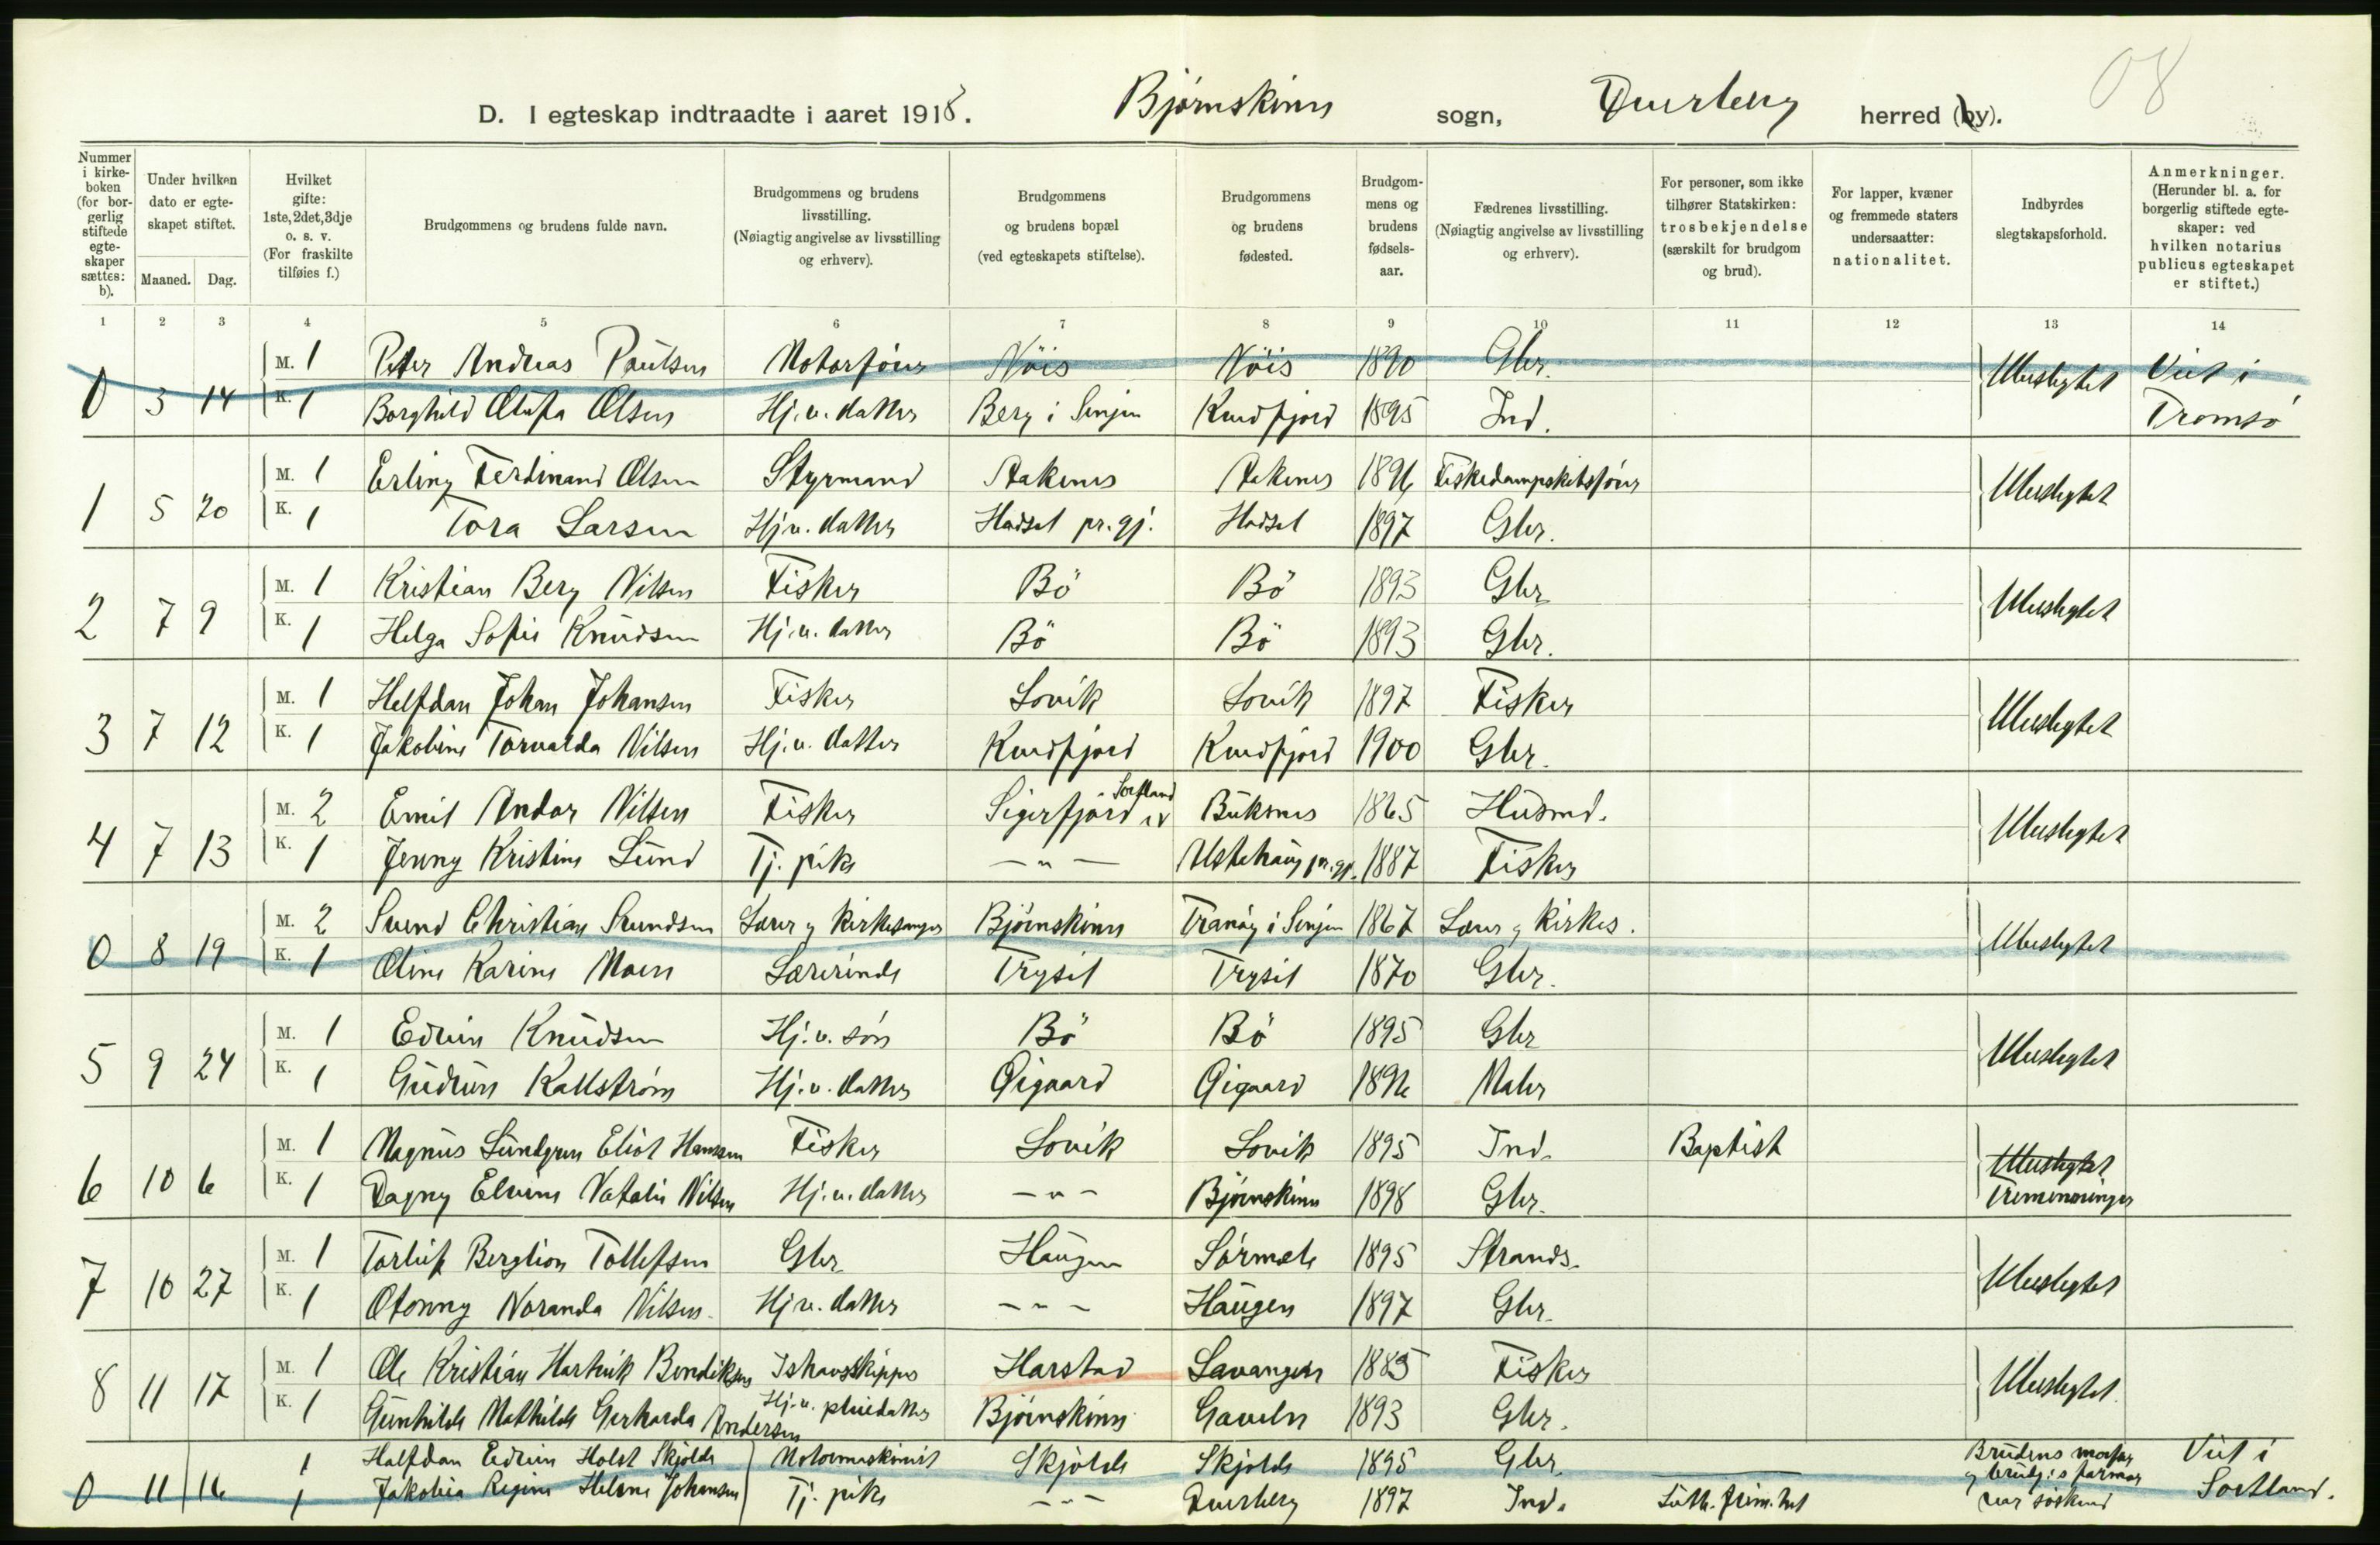 08
D. I egteskap indtraadte i aaret 1918. Bjørnskinn sogn, Dverberg herred (by).
Nummer i kirkeboken (for borgerlig stiftede egteskaper sættes: b).
Under hvilken dato er egteskapet stiftet.
Maaned. Dag.
Hvilket gifte: 1ste, 2det, 3dje o. s. v. (For fraskilte tilføies f.)
Brudgommens og brudens fulde navn.
Brudgommens og brudens livsstilling. (Nøiagtig angivelse av livsstilling og erhverv).
Brudgommens og brudens bopæl (ved egteskapets stiftelse).
Brudgommens og brudens fødested.
Brudgommens og brudens fødselsaar.
Fædrenes livsstilling. (Nøiagtig angivelse av livsstilling og erhverv).
For personer, som ikke tilhører Statskirken: trosbekjendelse (særskilt for brudgom og brud).
For lapper, kvæner og fremmede staters undersaatter: nationalitet.
Indbyrdes slegtskapsforhold.
Anmerkninger. (Herunder bl. a. for borgerlig stiftede egteskaper: ved hvilken notarius publicus egteskapet er stiftet.)
1 2 3 4 5 6 7 8 9 10 11 12 13 14
0 3 14 M. 1 Peter Andreas Paulsen Motorfører Nöis Nöis 1890 Gbr. Ubeslegtet Viet i
K. 1 Borghild Olufa Olsen Hj.v. datter Berg i Senjen Kvedfjord 1895 Ind. Tromsø
1 5 20 M. 1 Erling Ferdinand Olsen Styrmand Aaknes Aaknes 1896 Fiskedampskibsfører Ubeslegtet
K. 1 Tora Larsen Hj.v. datter Hadsel pr.gj. Hadsel 1897 Gbr.
2 7 9 M. 1 Kristian Berg Nilsen Fisker Bö Bö 1893 Gbr. Ubeslegtet
K. 1 Helga Sofie Knudsen Hj.v. datter Bö Bö 1893 Gbr.
3 7 12 M. 1 Halfdan Johan Johansen Fisker Lovik Lovik 1897 Fisker Ubeslegtet
K. 1 Jakobine Torvalda Nilsen Hj.v. datter Kvedfjord Kvedfjord 1900 Gbr.
4 7 13 M. 2 Emil Andor Nilsen Fisker Sigerfjord i Sortland Buksnes 1865 Husmd. Ubeslegtet
K. 1 Jenny Kristine Lund Tj. pike —"— Alstahaug pr.gj. 1887 Fisker
0 8 19 M. 2 Svend Christian Svendsen Lærer og kirkesanger Björnskinn Tranöy i Senjen 1867 Lærer og kirkes. Ubeslegtet
K. 1 Oline Karine Moen Lærerinde Trysil Trysil 1870 Gbr.
5 9 24 M. 1 Edvin Knudsen Hj.v. søn Bö Bö 1895 Gbr. Ubeslegtet
K. 1 Gudrun Kallstrøm Hj.v. datter Öigaard Öigaard 1896 Maler
6 10 6 M. 1 Magnus Lundgren Eliot Hanssen Fisker Lovik Lovik 1895 Ind. Baptist Ubeslegtet
K. 1 Dagny Elvine Natalie Nilsen Hj.v. datter —"— Björnskinn 1898 Gbr. Tremenninger
7 10 27 M. 1 Torleif Bergtion Tollefsen Gbr. Haugen Sörmela 1895 Strands. Ubeslegtet
K. 1 Otonny Noranda Nilsen Hj.v. datter —"— Haugen 1897 Gbr.
8 11 17 M. 1 Ole Kristian Hartvik Bendiksen Ishavsskipper Harstad Lavangen 1885 Fisker Ubeslegtet
K. 1 Gunhilde Mathilde Gerharda Andersen Hj.v. pleiedatter Björnskinn Gavelen 1893 Gbr.
0 11 16 1 Halfdan Edvin Holst Skjölde Motormaskinist Skjölde Skjölde 1895 Gbr. Brudens morfar Viet i
1 Jakobia Regine Helene Johansen Tj. pike —"— Dverberg 1897 Ind. Luth. frim.het og brudg:s farmor var søskend Sortland.